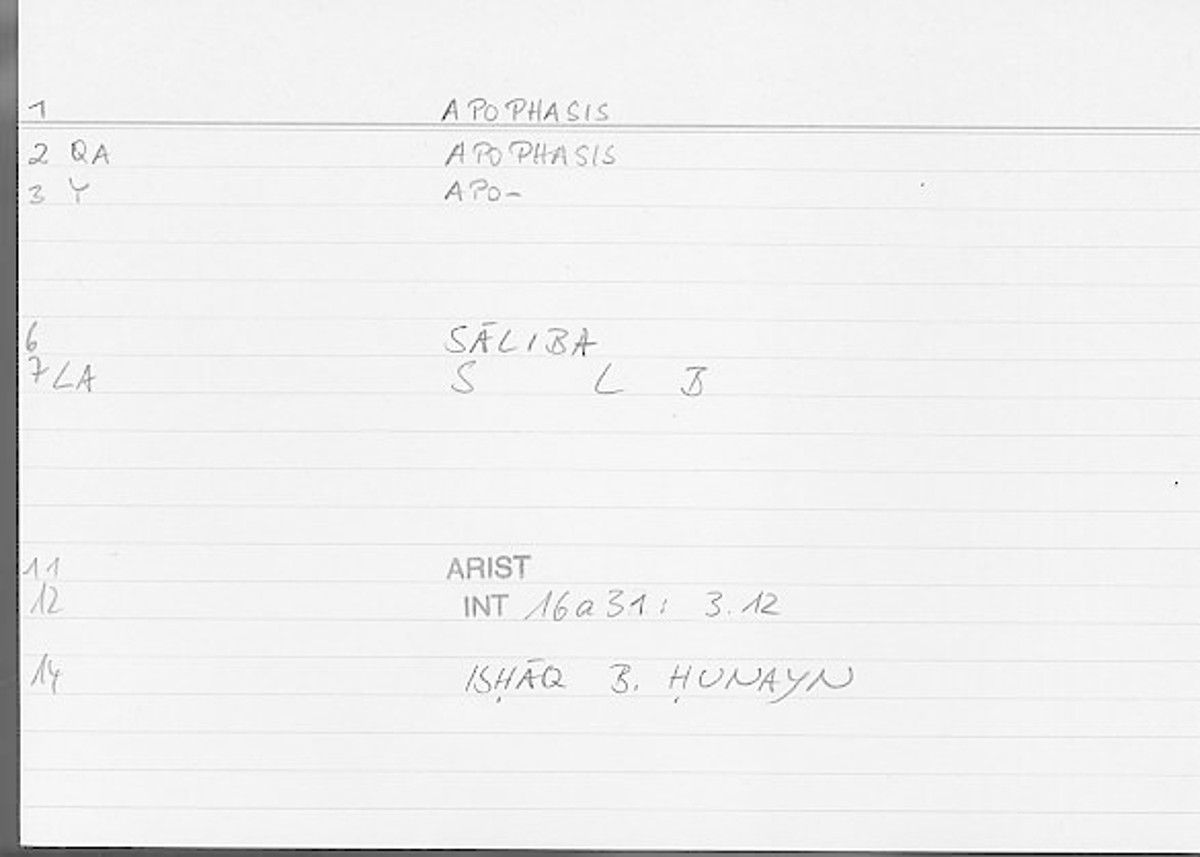 1 APOPHASIS
2 QA APOPHASIS
3 Y APO-
6 SĀLIBA
7 LA S L B
11 ARIST
12 INT 16a31: 3.12
14 ISḤĀQ B. ḤUNAYN